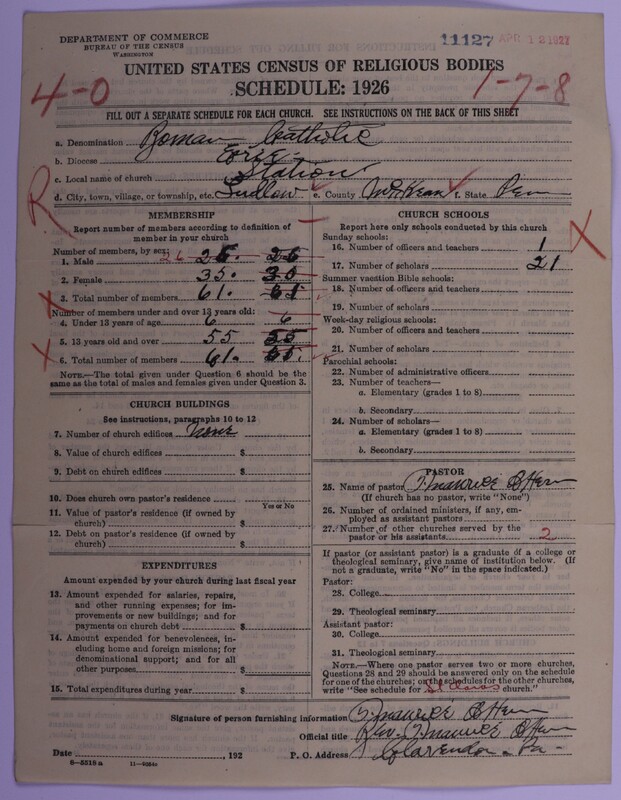 DEPARTMENT OF COMMERCE
BUREAU OF THE CENSUS
WASHINGTON
11127 APR 12 1927
UNITED STATES CENSUS OF RELIGIOUS BODIES
SCHEDULE: 1926
4-0
1-7-8
FILL OUT A SEPARATE SCHEDULE FOR EACH CHURCH. SEE INSTRUCTIONS ON THE BACK OF THIS SHEET
a. Denomination Roman Catholic
b. Diocese Erie
c. Local name of church Station
d. City, town, village, or township, etc. Ludlow e. County McKean f. State Pen
R
MEMBERSHIP
Report number of members according to definition of member in your church
Number of members, by sex:
1. Male 26 26. 26
2. Female 35. 30
3. Total number of members 61.
Number of members under and over 13 years old:
4. Under 13 years of age 6 6
5. 13 years old and over 55 55
6. Total number of members 61. 65.
NOTE.—The total given under Question 6 should be the same as the total of males and females given under Question 3.
CHURCH BUILDINGS
See instructions, paragraphs 10 to 12
7. Number of church edifices None
8. Value of church edifices $
9. Debt on church edifices $
10. Does church own pastor's residence
Yes or No
11. Value of pastor's residence (if owned by church) $
12. Debt on pastor's residence (if owned by church) $
EXPENDITURES
Amount expended by your church during last fiscal year
13. Amount expended for salaries, repairs, and other running expenses; for improvements or new buildings; and for payments on church debt $
14. Amount expended for benevolences, including home and foreign missions; for denominational support; and for all other purposes $
15. Total expenditures during year $
CHURCH SCHOOLS
Report here only schools conducted by this church
Sunday schools:
16. Number of officers and teachers 1
17. Number of scholars 21
Summer vacation Bible schools:
18. Number of officers and teachers
19. Number of scholars
Week-day religious schools:
20. Number of officers and teachers
21. Number of scholars
Parochial schools:
22. Number of administrative officers
23. Number of teachers—
a. Elementary (grades 1 to 8)
b. Secondary
24. Number of scholars—
a. Elementary (grades 1 to 8)
b. Secondary
PASTOR
25. Name of pastor T. Maurice
(If church has no pastor, write "None")
26. Number of ordained ministers, if any, employed as assistant pastors
27. Number of other churches served by the pastor or his assistants 2
If pastor (or assistant pastor) is a graduate of a college or theological seminary, give name of institution below. (If not a graduate, write "No" in the space indicated.)
Pastor:
28. College
29. Theological seminary
Assistant pastor:
30. College
31. Theological seminary
NOTE.—Where one pastor serves two or more churches, Questions 28 and 29 should be answered only on the schedule for one of the churches; on the schedules for the other churches, write "See schedule for St Claras church."
Signature of person furnishing information T. Maurice
Official title Rev. T. Maurice
Date , 192 P. O. Address Clarendon - Pa -
8—5518 a